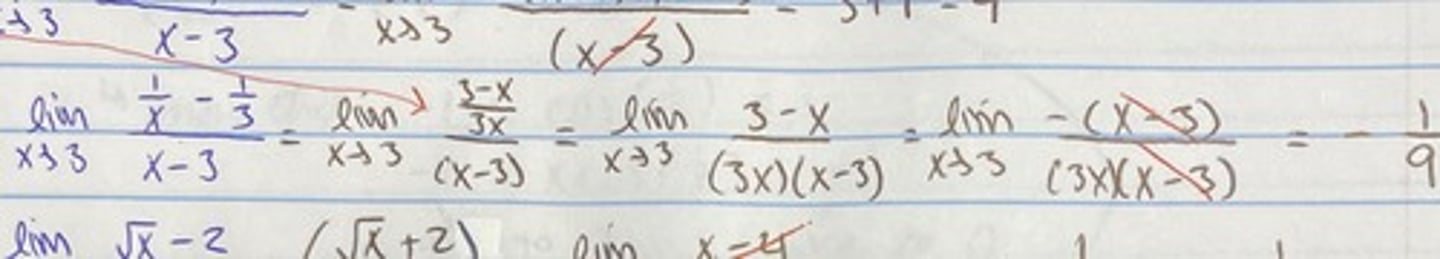 x→3 x-3 x→3 (x-3)
lim x→3 (1/x - 1/3)/(x-3) = lim x→3 ((3-x)/(3x))/(x-3) = lim x→3 (3-x)/((3x)(x-3)) = lim x→3 -(x-3)/((3x)(x-3)) = -1/9
lim √x-2 (√x+2) lim x-4 1